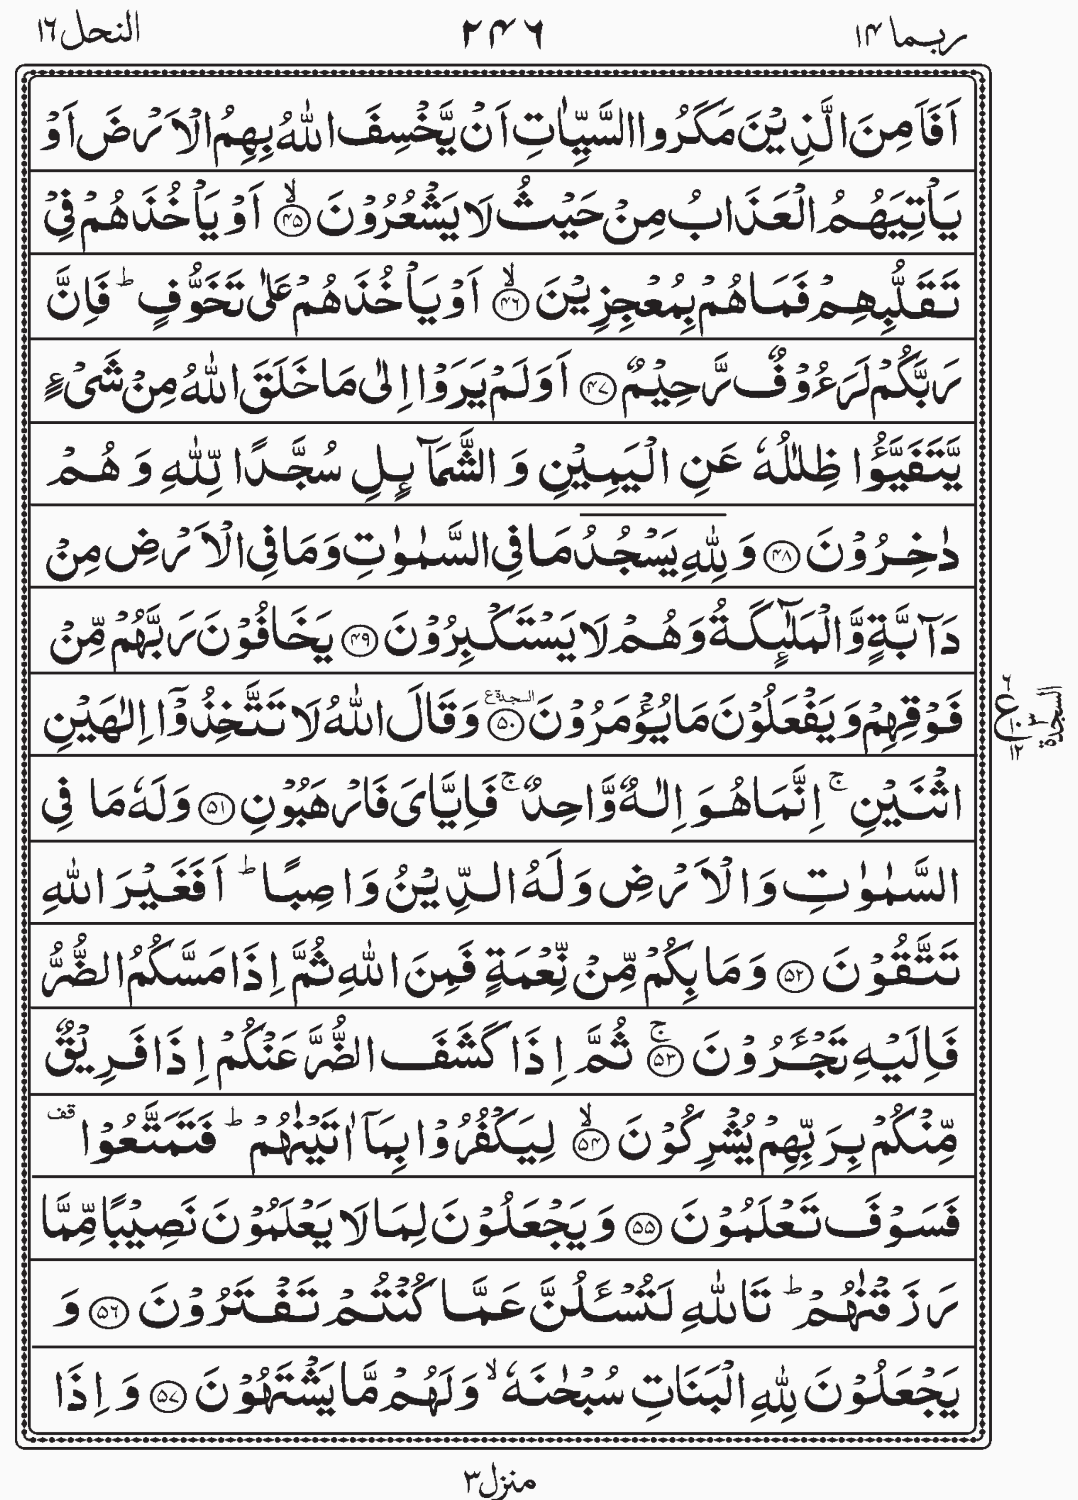 ربما ١٤ ٢٤٦ النحل ١٦
اَفَاَمِنَ الَّذِيْنَ مَكَرُوا السَّيِّاٰتِ اَنْ يَّخْسِفَ اللّٰهُ بِهِمُ الْاَرْضَ اَوْ
يَاْتِيَهُمُ الْعَذَابُ مِنْ حَيْثُ لَا يَشْعُرُوْنَ ۙ‏﴿۴۵﴾ اَوْ يَاْخُذَهُمْ فِىْ
تَقَلُّبِهِمْ فَمَا هُمْ بِمُعْجِزِيْنَ ۙ‏﴿۴۶﴾ اَوْ يَاْخُذَهُمْ عَلٰى تَخَوُّفٍ ؕ فَاِنَّ
رَبَّكُمْ لَرَءُوْفٌ رَّحِيْمٌ ‏﴿۴۷﴾ اَوَلَمْ يَرَوْا اِلٰى مَا خَلَقَ اللّٰهُ مِنْ شَىْءٍ
يَّتَفَيَّؤُا ظِلٰلُهٗ عَنِ الْيَمِيْنِ وَ الشَّمَآئِلِ سُجَّدًا لِّلّٰهِ وَ هُمْ
دٰخِرُوْنَ ‏﴿۴۸﴾ وَلِلّٰهِ يَسْجُدُ مَا فِى السَّمٰوٰتِ وَمَا فِى الْاَرْضِ مِنْ
دَآبَّةٍ وَّالْمَلٰٓئِكَةُ وَهُمْ لَا يَسْتَكْبِرُوْنَ ‏﴿۴۹﴾ يَخَافُوْنَ رَبَّهُمْ مِّنْ
فَوْقِهِمْ وَيَفْعَلُوْنَ مَا يُؤْمَرُوْنَ ‏﴿۵۰﴾ السجدة ع وَقَالَ اللّٰهُ لَا تَتَّخِذُوْۤا اِلٰهَيْنِ
اثْنَيْنِ ۚ اِنَّمَا هُوَ اِلٰهٌ وَّاحِدٌ ۚ فَاِيَّاىَ فَارْهَبُوْنِ ‏﴿۵۱﴾ وَلَهٗ مَا فِى
السَّمٰوٰتِ وَالْاَرْضِ وَلَهُ الدِّيْنُ وَاصِبًا ؕ اَفَغَيْرَ اللّٰهِ
تَتَّقُوْنَ ‏﴿۵۲﴾ وَمَا بِكُمْ مِّنْ نِّعْمَةٍ فَمِنَ اللّٰهِ ثُمَّ اِذَا مَسَّكُمُ الضُّرُّ
فَاِلَيْهِ تَجْــَٔرُوْنَ ۚ‏﴿۵۳﴾ ثُمَّ اِذَا كَشَفَ الضُّرَّ عَنْكُمْ اِذَا فَرِيْقٌ
مِّنْكُمْ بِرَبِّهِمْ يُشْرِكُوْنَ ۙ‏﴿۵۴﴾ لِيَكْفُرُوْا بِمَاۤ اٰتَيْنٰهُمْ ؕ فَتَمَتَّعُوْا قف
فَسَوْفَ تَعْلَمُوْنَ ‏﴿۵۵﴾ وَيَجْعَلُوْنَ لِمَا لَا يَعْلَمُوْنَ نَصِيْبًا مِّمَّا
رَزَقْنٰهُمْ ؕ تَاللّٰهِ لَتُسْـَٔلُنَّ عَمَّا كُنْتُمْ تَفْتَرُوْنَ ‏﴿۵۶﴾ وَ
يَجْعَلُوْنَ لِلّٰهِ الْبَنَاتِ سُبْحٰنَهٗ ۙ وَلَهُمْ مَّا يَشْتَهُوْنَ ‏﴿۵۷﴾ وَاِذَا
السجدة ٣
٦ ع ١٠ ١٢
منزل ٣